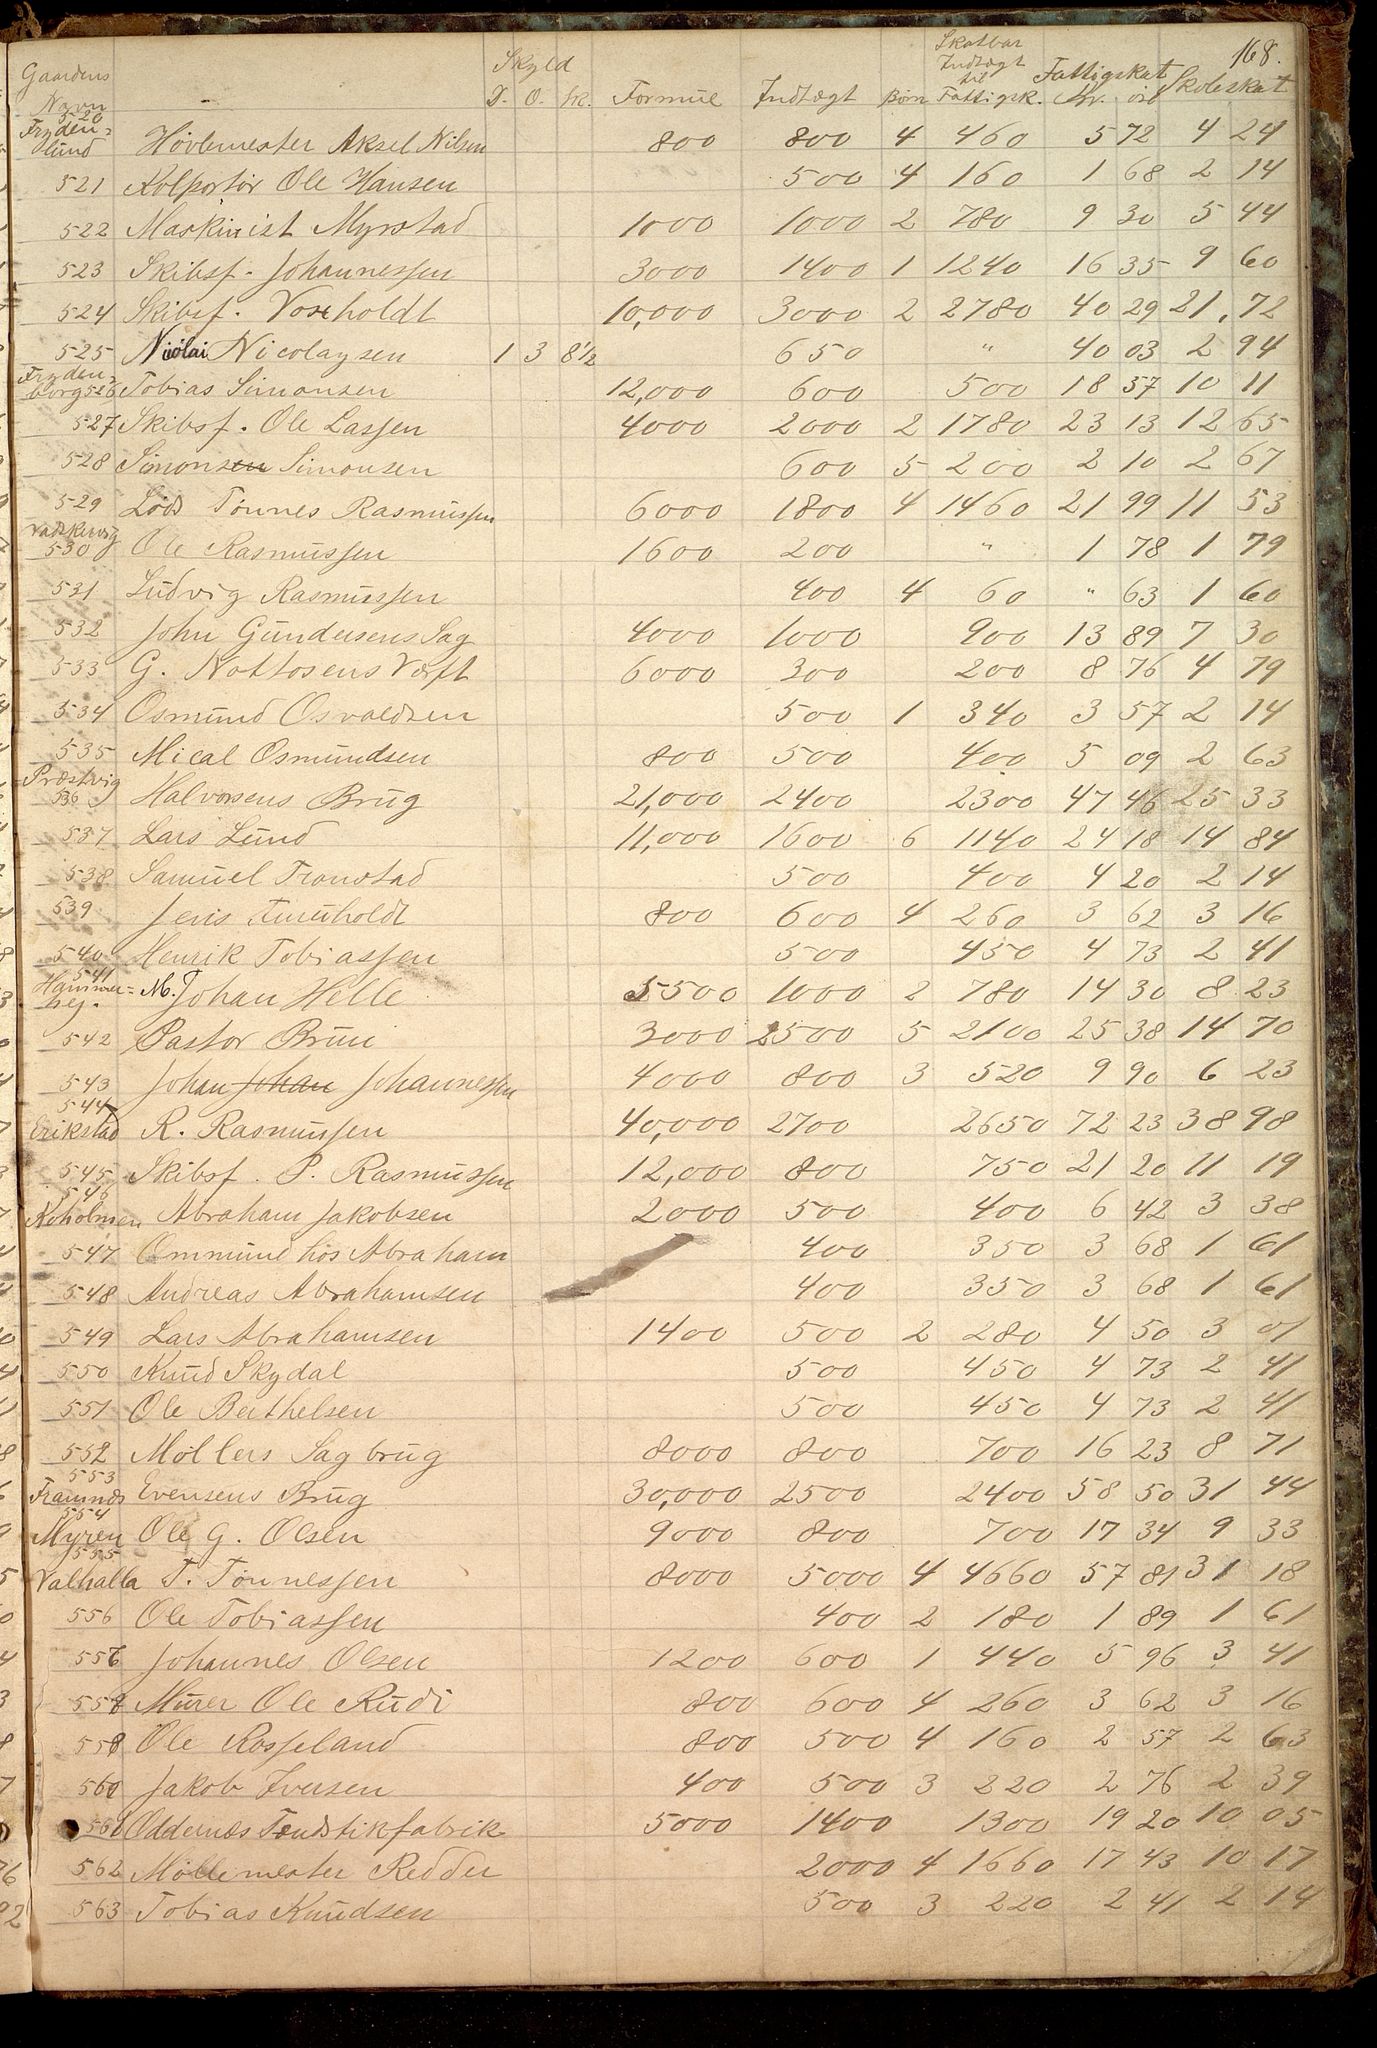 168.
Gaardens Navn Skyld D. O. Sk. Formue Indtægt Børn Skatbar Indtægt til Fattigsk. Fattigskat Kr. öre Skoleskat
520 Frydenlund Hövlemester Aksel Nilsen 800 800 4 460 5 72 4 24
521 Kolportör Ole Hansen 500 4 160 1 68 2 14
522 Maskinist Myrstad 1000 1000 2 780 9 30 5 44
523 Skibsf. Johannessen 3000 1400 1 1240 16 35 9 60
524 Skibsf. Voseholdt 10,000 3000 2 2780 40 29 21,72
525 Nicolai Nicolaysen 1 3 8½ 650 " 40 03 2 94
Frydenborg 526 Tobias Simonsen 12,000 600 500 18 57 10 11
527 Skibsf. Ole Lassen 4000 2000 2 1780 23 13 12 65
528 Simonsen Simonsen 600 5 200 2 10 2 67
529 Lods Tönnes Rasmussen 6000 1800 4 1460 21 99 11 53
530 Ole Rasmussen 1600 200 " 1 78 1 79
531 Ludvig Rasmussen 400 4 60 " 63 1 60
532 John Gundersens Sag 4000 1000 900 13 89 7 30
533 G. Nottosens Værft 6000 300 200 8 76 4 79
534 Osmund Osvaldsen 500 1 340 3 57 2 14
535 Mical Osmundsen 800 500 400 5 09 2 63
Præstvig 536 Halvorsens Brug 21,000 2400 2300 47 46 25 33
537 Lars Lund 11,000 1600 6 1140 24 18 14 84
538 Samuel Tronstad 500 400 4 20 2 14
539 Jens Furuholdt 800 600 4 260 3 62 3 16
540 Henrik Tobiassen 500 450 4 73 2 41
541 Hammerhej. M. Johan Helle 5500 1000 2 780 14 30 8 23
542 Pastor Brun 3000 2500 5 2100 25 38 14 70
543 Johan Johan Johannessen 4000 800 3 520 9 90 6 23
544 Erikstad R. Rasmussen 40,000 2700 2650 72 23 38 98
545 Skibsf. P. Rasmussen 12,000 800 750 21 20 11 19
546 Koholmen Abraham Jakobsen 2000 500 400 6 42 3 38
547 Ommund hos Abraham 400 350 3 68 1 61
548 Andreas Abrahamsen 400 350 3 68 1 61
549 Lars Abrahamsen 1400 500 2 280 4 50 3 01
550 Knud Skydal 500 450 4 73 2 41
551 Ole Berthelsen 500 450 4 73 2 41
552 Möllers Sagbrug 8000 800 700 16 23 8 71
553 Framnæs Evensens Brug 30,000 2500 2400 58 50 31 44
554 Myren Ole G. Olsen 9000 800 700 17 34 9 33
555 Valhalla T. Tönnessen 8000 5000 4 4660 57 81 31 18
556 Ole Tobiassen 400 2 180 1 89 1 61
557 Johannes Olsen 1200 600 1 440 5 96 3 41
558 Murer Ole Rudi 800 600 4 260 3 62 3 16
559 Ole Rosseland 800 500 4 160 2 57 2 63
560 Jakob Iversen 400 500 3 220 2 76 2 39
561 Oddernæs Tændstikfabrik 5000 1400 1300 19 20 10 05
562 Möllemester Redder 2000 4 1660 17 43 10 17
563 Tobias Knudsen 500 3 220 2 41 2 14